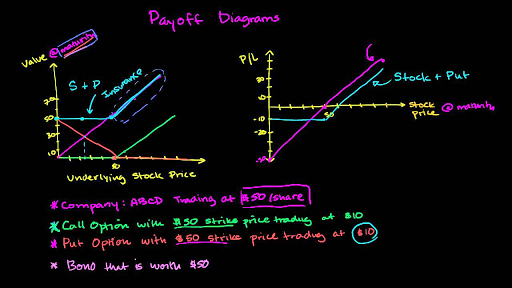 Payoff Diagrams
Value @ maturity
S + P
Insurance
70
50
30
10
50
Underlying Stock Price
P/L
Stock + Put
50
-10
-20
50
Stock Price @ maturity
* Company: ABCD Trading at $50/share
* Call Option with $50 strike price trading at $10
* Put Option with $50 strike price trading at $10
* Bond that is worth $50